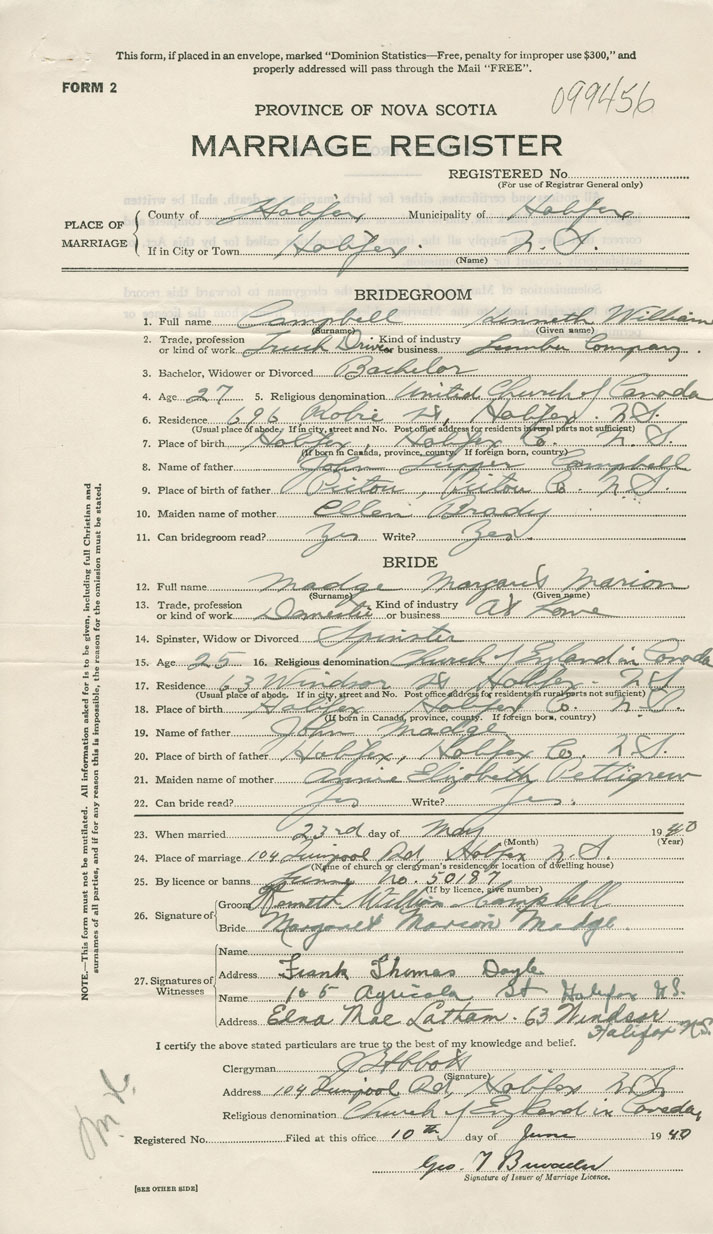 This form, if placed in an envelope, marked "Dominion Statistics—Free, penalty for improper use $300," and
properly addressed will pass through the Mail "FREE".
FORM 2
099456
PROVINCE OF NOVA SCOTIA
MARRIAGE REGISTER
REGISTERED No.
(For use of Registrar General only)
PLACE OF MARRIAGE
County of Halifax Municipality of Halifax
If in City or Town Halifax. N.S.
(Name)
BRIDEGROOM
1. Full name Campbell Kenneth William
(Surname) (Given name)
2. Trade, profession or kind of work Truck Driver Kind of industry or business Lumber Company.
3. Bachelor, Widower or Divorced Bachelor
4. Age 27 5. Religious denomination United Church of Canada
6. Residence 696 Robie St, Halifax. N.S.
(Usual place of abode. If in city, street and No. Post office address for residents in rural parts not sufficient)
7. Place of birth Halifax, Halifax Co. N.S.
(If born in Canada, province, county. If foreign born, country)
8. Name of father John Campbell
9. Place of birth of father Pictou, Pictou Co. N.S.
10. Maiden name of mother Ellen Brady
11. Can bridegroom read? Yes Write? Yes.
BRIDE
12. Full name Madge Margaret Marion
(Surname) (Given name)
13. Trade, profession or kind of work Domestic Kind of industry or business At Home
14. Spinster, Widow or Divorced Spinster
15. Age 25 16. Religious denomination Church of England in Canada
17. Residence 63 Windsor St Halifax. N.S.
(Usual place of abode. If in city, street and No. Post office address for residents in rural parts not sufficient)
18. Place of birth Halifax Halifax Co. N.S.
(If born in Canada, province, county. If foreign born, country)
19. Name of father John Madge
20. Place of birth of father Halifax, Halifax Co. N.S.
21. Maiden name of mother Annie Elizabeth Pettigrew
22. Can bride read? yes Write? yes.
23. When married 23rd day of May 1940
(Month) (Year)
24. Place of marriage 104 Rd, Halifax N.S.
(Name of church or clergyman's residence or location of dwelling house)
25. By licence or banns No. 50187
(If by licence, give number)
26. Signature of
Groom Kenneth William Campbell
Bride Margaret Marion Madge.
27. Signatures of Witnesses
Name
Address Frank Thomas Doyle
Name 105 Agricola St Halifax N.S.
Address Edna Mae Latham. 63 Windsor
Halifax N.S.
I certify the above stated particulars are true to the best of my knowledge and belief.
Clergyman
(Signature)
Address 104 Rd, Halifax N.S.
Religious denomination Church of England in Canada,
Registered No. Filed at this office 10th day of June 1940
Geo. T
Signature of Issuer of Marriage Licence.
[SEE OTHER SIDE]
NOTE.—This form must not be mutilated. All information asked for is to be given, including full Christian and
surnames of all parties, and if for any reason this is impossible, the reason for the omission must be stated.